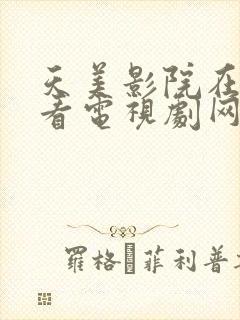 天美影院在
看電視劇网
羅格·菲利普